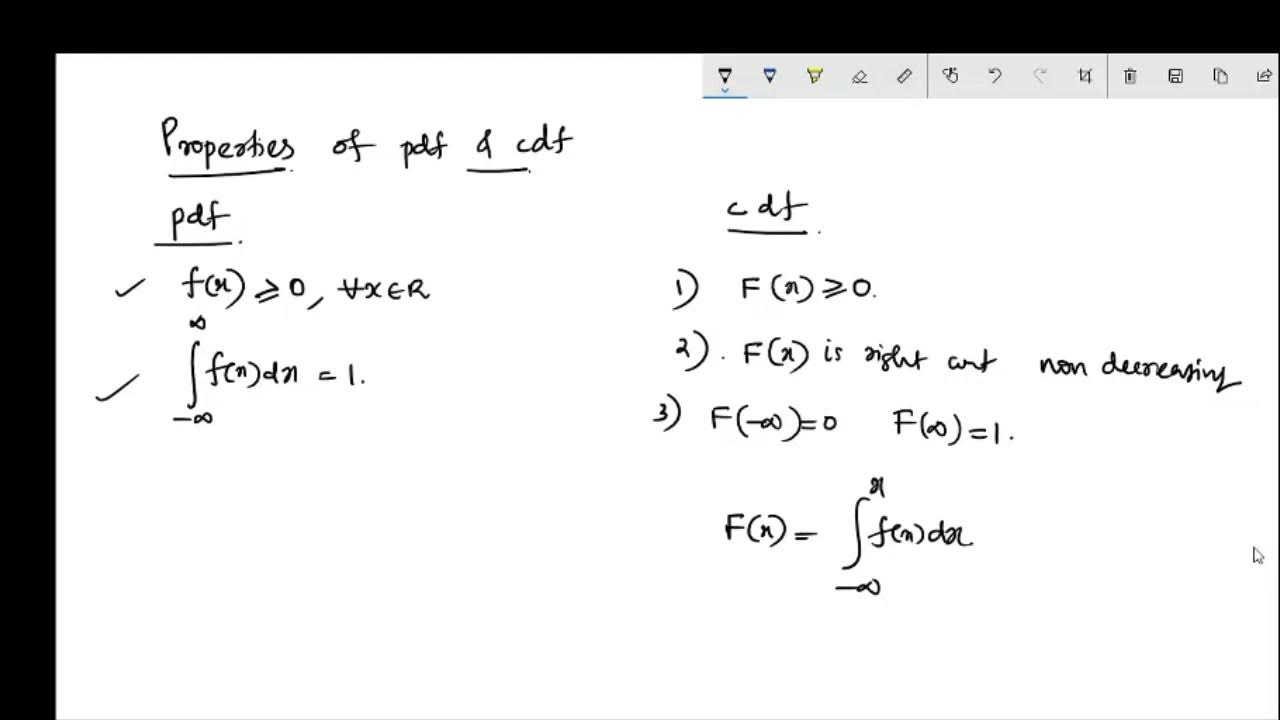 Properties of pdf & cdf
pdf
f(x) ⩾ 0, ∀x∈R
∫_{-∞}^{∞} f(x)dx = 1.
cdf
1) F(x) ⩾ 0.
2). F(x) is right cnt non decreasing
3) F(-∞)=0 F(∞)=1.
F(x) = ∫_{-∞}^{x} f(x)dx